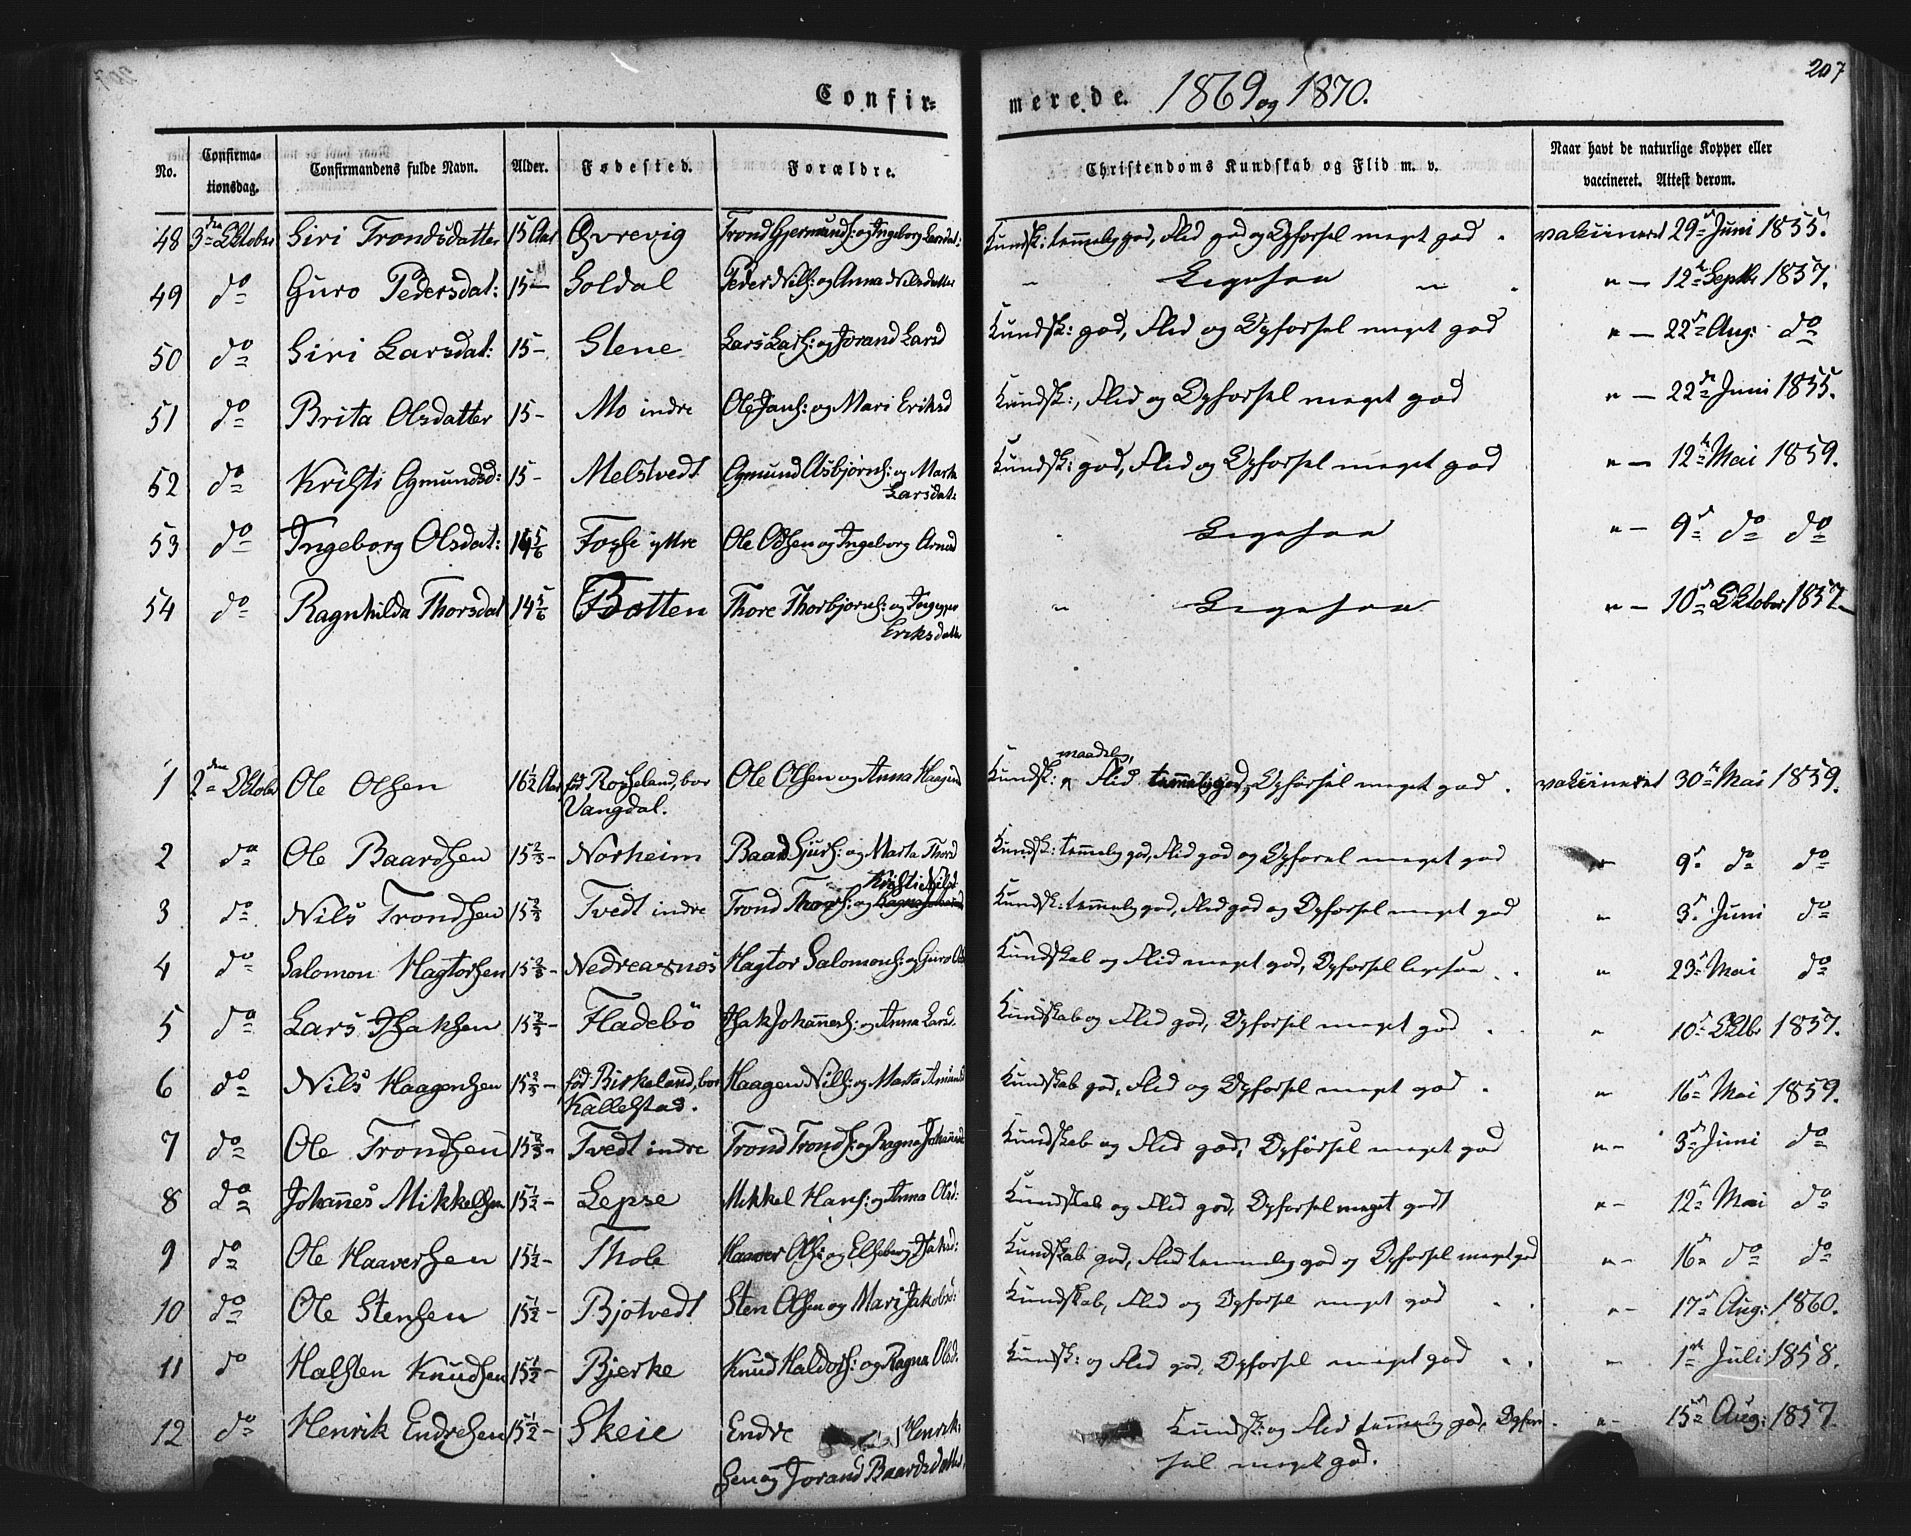 207
Confirmerede. 1869 og 1870.
No. Confirmationsdag. Confirmandens fulde Navn. Alder. Fødested. Forældre. Christendoms Kundskab og Flid m. v. Naar havt de naturlige Kopper eller vaccineret. Attest derom.
48 3die Oktober Siri Trondsdatter 15 Aar Øvrevig Trond Gjermunds: og Ingeborg Larsdat: Kundsk: temmelig god, Flid god og Opførsel meget god. vakcineret 29de Juni 1855.
49 do Guro Pedersdat: 15— Soldal Peder Nils: og Anna Nilsdatter — Ligesaa — " — 12te Septb: 1857.
50 do Siri Larsdat: 15— Stene Lars Lars: og Jorand Larsd Kundsk: god, Flid og Opførsel meget god " — 22de Aug: do
51 do Brita Olsdatter 15— Mo indre Ole Jans: og Mari Eriksd Kundsk:, Flid og Opførsel meget god " — 22de Juni 1855.
52 do Kristi Ogmundsd: 15— Melstvedt Ogmund Asbjørns: og Marta Larsdat: Kundsk: god, Flid og Opførsel meget god " — 12te Mai 1859.
53 do Ingeborg Olsdat: 14 5/6 Fosse ytre Ole Olsen og Ingeborg Arned Ligesaa " — 9de do do
54 do Ragnhilda Thorsdat 14 5/6 Botten Thore Thorbjørns: og Eriksdatter " Ligesaa " — 10de Oktober 1857
1 2den Oktober Ole Olsen 16 1/2 Aar fød Rosseland, bor Vangdal. Ole Olsen og Anna Haagensd Kundsk: maadelig, Flid temmelig god, Opførsel meget god. vakcineret 30te Mai 1859.
2 do Ole Baardsen 15 2/3— Norheim Baard Sjurs: og Marta Thord Kundsk: temmelig god, Flid god og Opførsel meget god " 9de do do
3 do Nils Trondsen 15 2/3 Tvedt indre Trond Thors: og Kristi Nilsd Kundsk: temmelig god, Flid god og Opførsel meget god " 3de Juni do
4 do Salomon Hagtorsen 15 2/3— Nedreaasnæs Hagtor Salomons: og Guro Ols Kundskab og Flid meget god, Opførsel ligesaa. " 23de Mai do
5 do Lars Isaksen 15 2/3— Fladebö Isak Johannes: og Anna Larsd. Kundskab og Flid god, Opførsel meget god. " 10de Oktb: 1857.
6 do Nils Haagensen 15 2/3— fød Birkeland, bor Kallestad. Haagen Nils: og Marta Amunds Kundskab god, Flid og Opførsel meget god. " 16de Mai 1859.
7 do Ole Trondsen 15 2/3— Tvedt indre Trond Tronds: og Ragna Johannesd Kundskab og Flid god, Opførsel meget god "— 3de Juni do
8 do Johannes Mikkelsen 15 1/2— Lepsø Mikkel Hans: og Anna Olsd: Kundskab og Flid god, Opførsel meget godt "— 12te Mai do
9 do Ole Haaversen 15 1/2— Thole Haaver Ols: og Elseberg Isaksd: Kundskab god, Flid temmelig god og Opførsel meget god "— 16de do do
10 do Ole Stensen 15 1/2— Bjotvedt Sten Olsen og Mari Jakobsd: Kundskab, Flid og Opførsel meget god "— 17de Aug: 1860.
11 do Halsten Knudsen 15 1/2— Bjerke Knud Haldors: og Ragna Olsd. Kundsk: og Flid god, Opførsel meget god. " 1ste Juli 1858.
12 do Henrik Endresen 15 1/2— Skeie Endre Henriksen og Jorand Baardsdatter Kundsk: og Flid temmelig god, Opførsel meget god. "— 15de Aug: 1857.